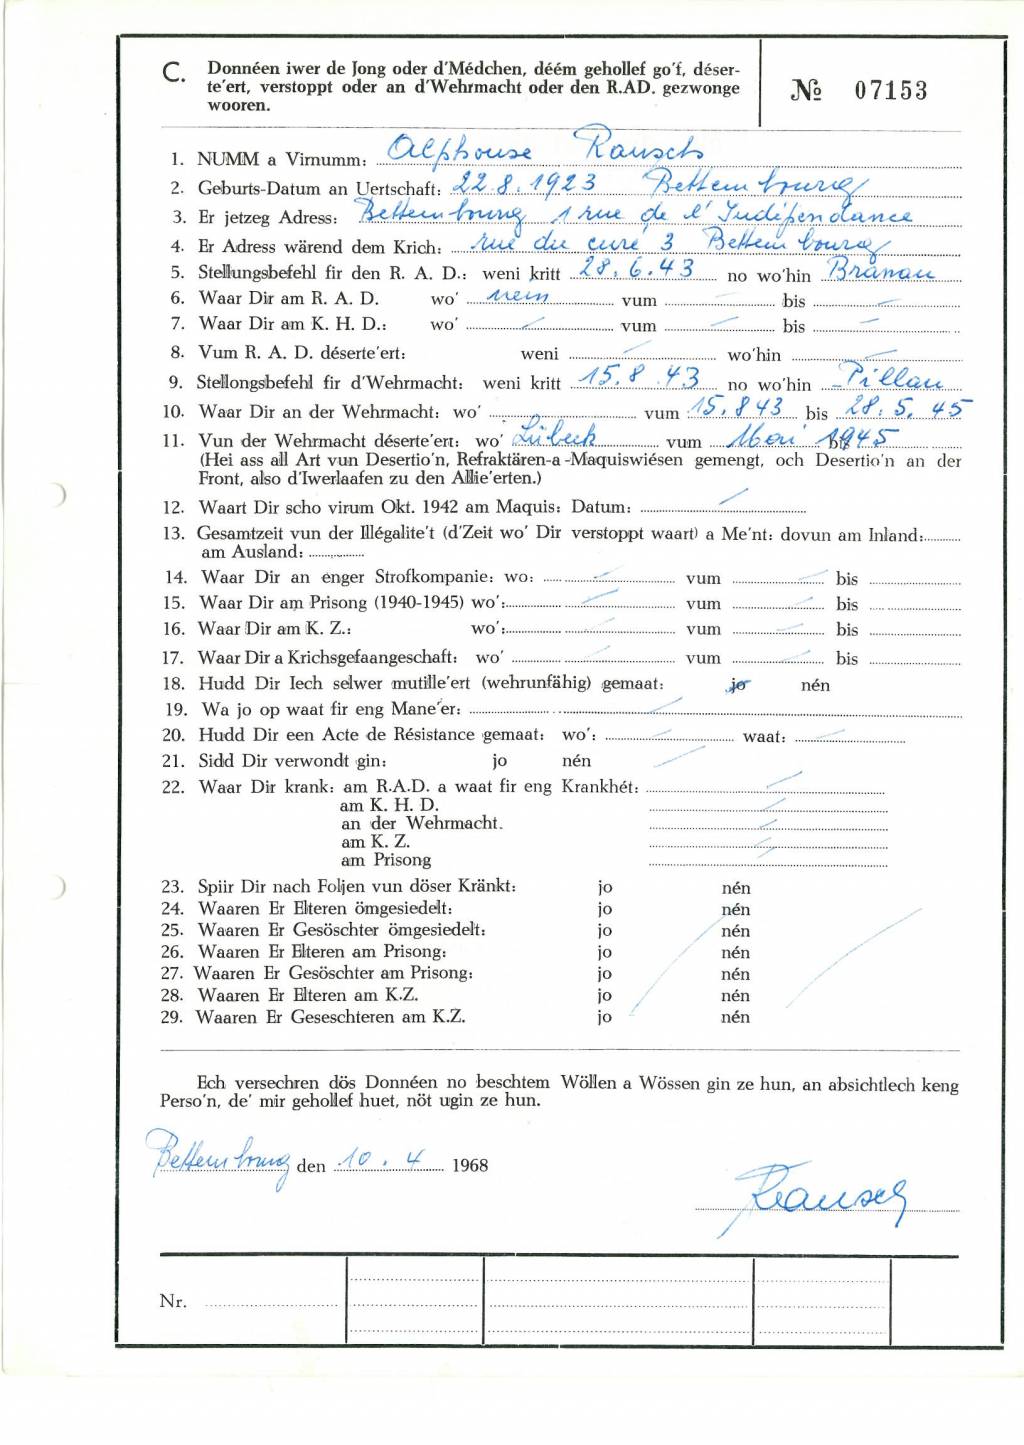 C. Donnéen iwer de Jong oder d'Médchen, déém gehollef go'f, déser-
te'ert, verstoppt oder an d'Wehrmacht oder den R.AD. gezwonge
wooren.
№ 07153
1. NUMM a Virnumm: Alphonse Rausch
2. Geburts-Datum an Uertschaft: 22.8.1923 Bettembourg
3. Er jetzeg Adress: Bettembourg 1 rue de l'Indépendance
4. Er Adress wärend dem Krich: rue du curé 3 Bettembourg
5. Stellungsbefehl fir den R. A. D.: weni kritt 28.6.43 no wo'hin Branau
6. Waar Dir am R. A. D. wo' nein vum bis
7. Waar Dir am K. H. D.: wo' vum bis
8. Vum R. A. D. déserte'ert: weni wo'hin
9. Stellongsbefehl fir d'Wehrmacht: weni kritt 15.8.43 no wo'hin Pillau
10. Waar Dir an der Wehrmacht: wo' vum 15.8 43 bis 28.5.45
11. Vun der Wehrmacht déserte'ert: wo' Lübeck vum Mai 1945 bis
(Hei ass all Art vun Desertio'n, Refraktären-a-Maquiswiésen gemengt, och Desertio'n an der
Front, also d'Iwerlaafen zu den Allie'erten.)
12. Waart Dir scho virum Okt. 1942 am Maquis: Datum:
13. Gesamtzeit vun der Illégalite't (d'Zeit wo' Dir verstoppt waart) a Me'nt: dovun am Inland:
am Ausland:
14. Waar Dir an enger Strofkompanie: wo: vum bis
15. Waar Dir am Prisong (1940-1945) wo': vum bis
16. Waar Dir am K. Z.: wo': vum bis
17. Waar Dir a Krichsgefaangeschaft: wo' vum bis
18. Hudd Dir Iech selwer mutille'ert (wehrunfähig) gemaat: jo nén
19. Wa jo op waat fir eng Mane'er:
20. Hudd Dir een Acte de Résistance gemaat: wo': waat:
21. Sidd Dir verwondt gin: jo nén
22. Waar Dir krank: am R.A.D. a waat fir eng Krankhét:
am K. H. D.
an der Wehrmacht.
am K. Z.
am Prisong
23. Spiir Dir nach Foljen vun döser Kränkt: jo nén
24. Waaren Er Elteren ömgesiedelt: jo nén
25. Waaren Er Gesöschter ömgesiedelt: jo nén
26. Waaren Er Elteren am Prisong: jo nén
27. Waaren Er Gesöschter am Prisong: jo nén
28. Waaren Er Elteren am K.Z. jo nén
29. Waaren Er Geseschteren am K.Z. jo nén
Ech versechren dös Donnéen no beschtem Wöllen a Wössen gin ze hun, an absichtlech keng
Perso'n, de' mir gehollef huet, nöt ugin ze hun.
Bettembourg den 10.4 1968
Rausch
Nr.